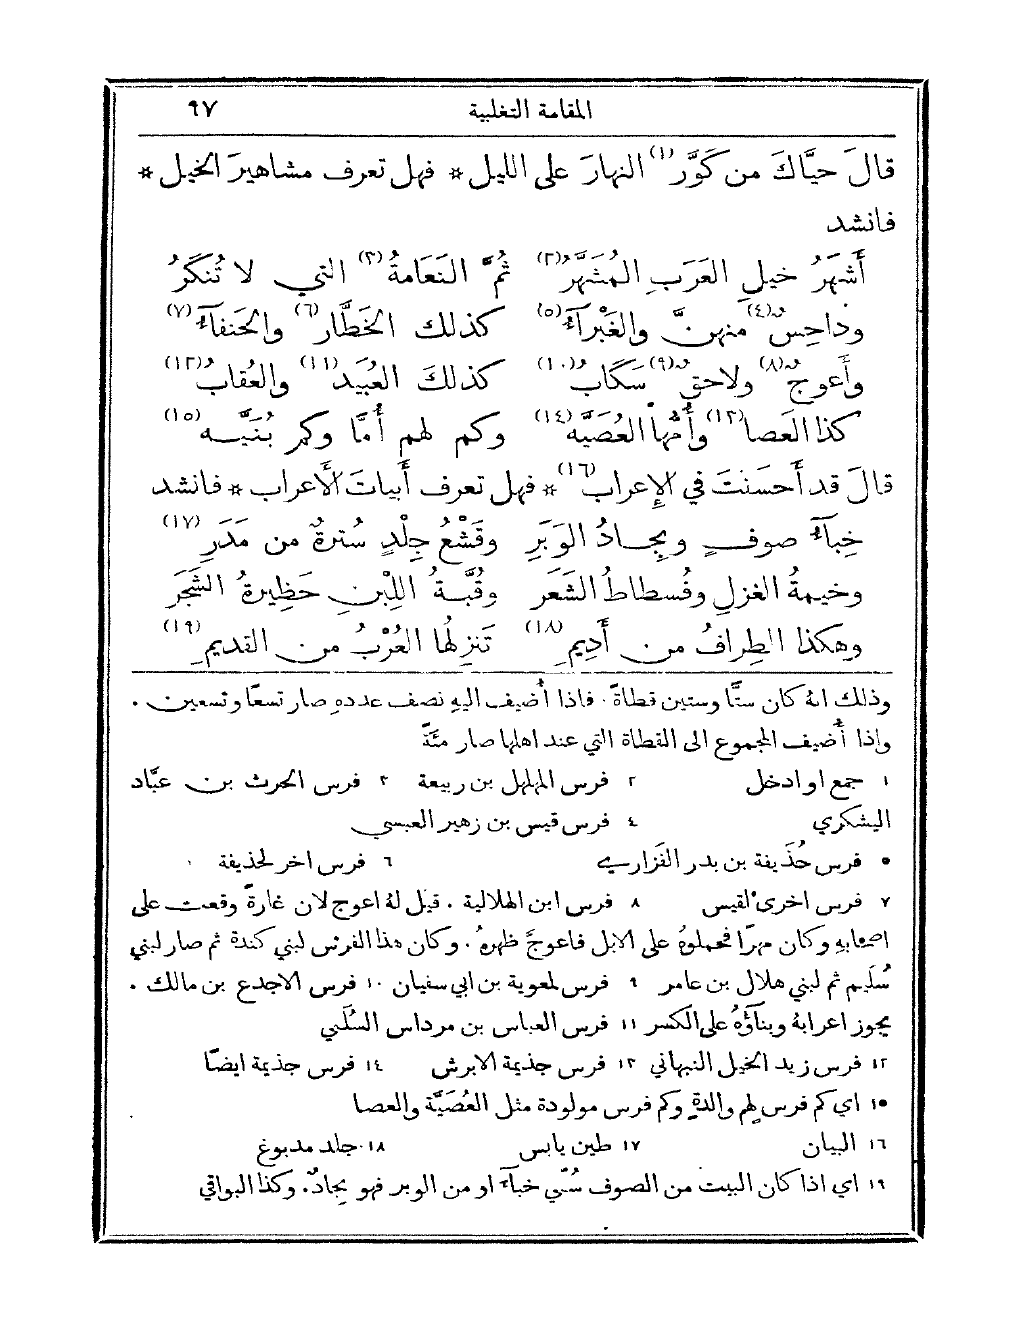 المقامة التغلبية ٩٧
قالَ حيَّاكَ من كَوَّر (١) النهارَ على الليل * فهل تعرف مشاهيرَ الخيل *
فانشد
أَشهَرُ خيلِ العَرَبِ المُشهَّرُ (٢) ثمَّ النَعَامةُ (٣) التي لا تُنكَرُ
وداحِسٌ (٤) منهنَّ والغَبْرآءُ (٥) كذلك الخَطَّار (٦) والحَنفآءُ (٧)
وأَعوجٌ (٨) ولاحقٌ (٩) سَكَابُ (١٠) كذلكَ العُبَيد (١١) والعُقابُ (١٢)
كذا العَصا (١٣) وأُمُّها العُصَيَّه (١٤) وكم لهم أُمًّا وكم بُنَيَّه (١٥)
قالَ قد أَحسَنتَ في الإِعراب (١٦) * فهل تعرف أَبياتَ الأَعراب * فانشد
خِبآءُ صوفٍ وبِجادُ الوَبَرِ وقَشْعُ جِلْدٍ سُترةٌ من مَدَرِ (١٧)
وخيمةُ الغزلِ وفُسطاطُ الشَعَر وقُبَّةُ اللِبْنِ حَظِيرةُ الشَجَر
وهكذا الطِرافُ من أَدِيمِ (١٨) تَنزِلُها العُرْبُ من القديمِ (١٩)
وذلك انهُ كان ستًّا وستين قطاةً. فاذا أُضيف اليهِ نصف عددهِ صار تسعًا وتسعين.
واذا أُضيف المجموع الى القطاة التي عند اهلها صار مئةً
١ جمع او ادخل ٢ فرس المهلهل بن ربيعة ٣ فرس الحرث بن عبَّاد
اليشكري ٤ فرس قيس بن زهير العبسي
٥ فرس حُذَيفة بن بدر الفَزاري ٦ فرس اخر لحذيفة
٧ فرس اخرى لقيس ٨ فرس ابن الهلالية . قيل لهُ اعوج لان غارةً وقعت على
اصحابهِ وكان مهرًا فحملوهُ على الابل فاعوجَّ ظهرهُ. وكان هذا الفرس لبني كندة ثم صار لبني
سُلَيم ثم لبني هلال بن عامر ٩ فرس لمعوية بن ابي سفيان ١٠ فرس الاجدع بن مالك .
يجوز اعرابهُ وبنآؤهُ على الكسر ١١ فرس العباس بن مرداس السُلَمي
١٢ فرس زيد الخيل النبهاني ١٣ فرس جذيمة الابرش ١٤ فرس جذيمة ايضًا
١٥ اي كم فرس لهم والدةٍ وكم فرس مولودة مثل العُصَيَّة والعصا
١٦ البيان ١٧ طين يابس ١٨ جلد مدبوغ
١٩ اي اذا كان البيت من الصوف سُمّي خبآءً او من الوبر فهو بِجادٌ. وكذا البواقي